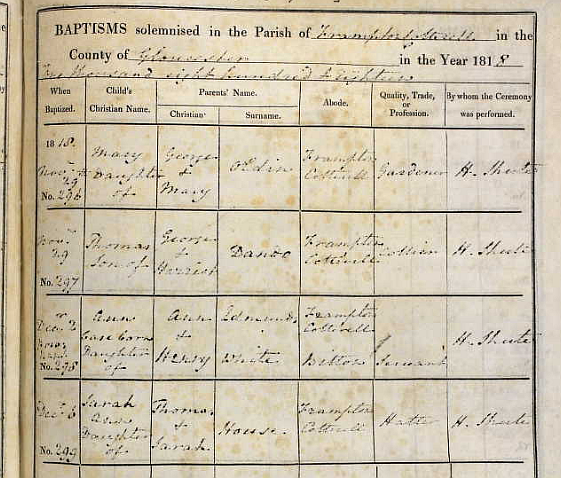 BAPTISMS solemnised in the Parish of Frampton Cotterell in the
County of Gloucester in the Year 1818
One thousand eight hundred & eighteen
When Baptized.
Child's Christian Name.
Parents' Name.
Christian
Surname.
Abode.
Quality, Trade, or Profession.
By whom the Ceremony was performed.
1818.
Novr 29th
No. 296
Mary
Daughter
of
George
&
Mary
Frampton
Cotterell
Gardener
H. Shute
Novr
29
No. 297
Thomas
Son of
George
&
Harriet
Dando
Frampton
Cotterell
Collier
H. Shute
Decr 2
No. 298
Ann
Base born
Daughter
of
Ann
&
Henry
Edmunds
White
Frampton
Cotterell
Bitton
Servant
H. Shute
Decr 6
No. 299
Sarah
Ann
Daughter
of
Thomas
&
Sarah
House
Frampton
Cotterell
Hatter
H. Shute